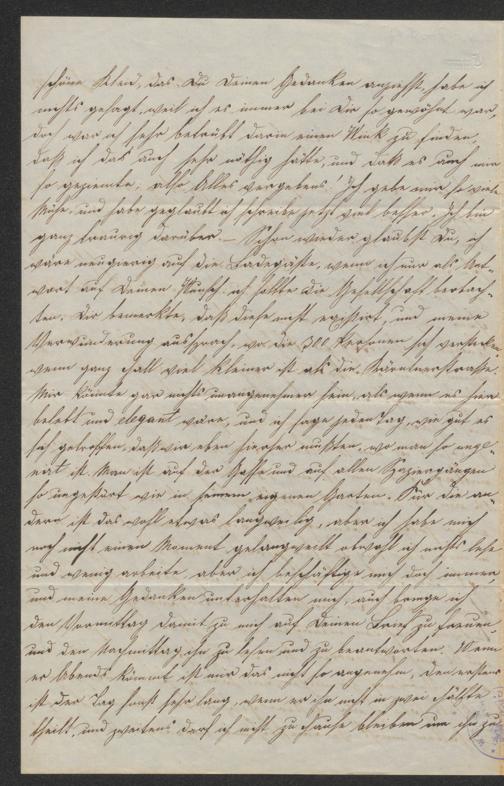 schöne Kleid, das Du Deinen Gedanken anziehst, habe ich
nichts gesagt, weil ich es immer bei Dir so gewöhnt war,
da war ich sehr betrübt darin einen Wink zu finden,
daß ich das auch sehr nöthig hätte, und daß es auch mir
so gezieme; also Alles vergebens! Ich gebe mir so viel
Mühe und habe geglaubt ich schreibe jetzt viel besser. Ich bin
ganz traurig darüber. — Schon wieder glaubst Du, ich
wäre neugierig auf die Badegäste, wenn ich nur als Ant-
wort auf Deinen Wunsch ich sollte die Gesellschaft beobach-
ten, Dir bemerkte, daß diese nicht existirt, und meine
Verwunderung aussprach, wo die 300 Personen sich verstecken
wenn ganz Hall viel kleiner ist als die Kärntnerstrasse.
Mir könnte gar nichts unangenehmer sein, als wenn es hier
belebt und elegant wäre, und ich sage jeden Tag, wie gut es
sich getroffen, daß wir eben hierher mußten, wo man so
ist. Man ist auf der Gasse und auf allen Spaziergängen
so ungestört wie in seinem eigenen Garten. Für die an-
dern ist das wohl etwas langweilig, aber ich habe mich
noch nicht einen Moment gelangweilt obwohl ich nichts lese
und wenig arbeite, aber ich beschäftige mich doch immer
und meine Gedanken unterhalten mich, auch bringe ich
den Vormittag damit zu mich auf Deinen Brief zu freuen
und den Nachmittag ihn zu lesen und zu beantworten. Wenn
er Abends kommt ist mir das nicht so angenehm, denn erstens
ist der Tag sonst sehr lang, wenn er ihn nicht in zwei Hälften
theilt, und zweitens darf ich nicht zu Hause bleiben um ihn zu